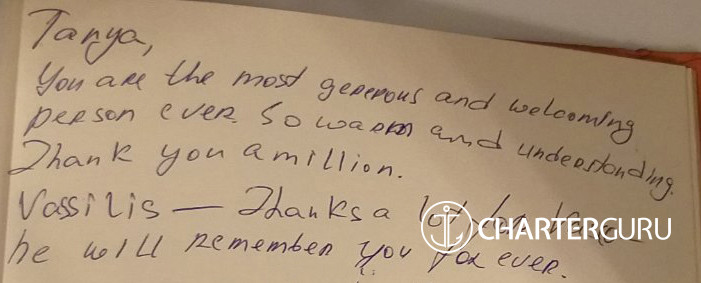 Tanya,
You are the most generous and welcoming
person ever. So warm and understanding.
Thank you a million.
Vassilis — Thanks a lot,
he will remember you for ever.
CHARTERGURU